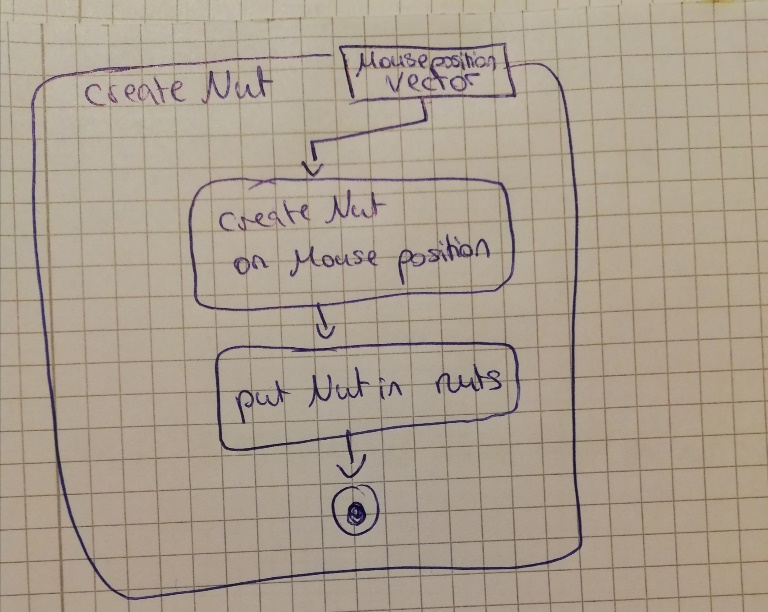 create Nut
Mouseposition
Vector
create Nut
on Mouse position
put Nut in nuts